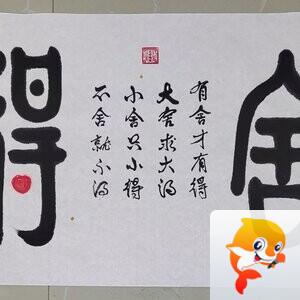 舍
有舍才有得
大舍求大得
小舍只小得
不舍就不得
得